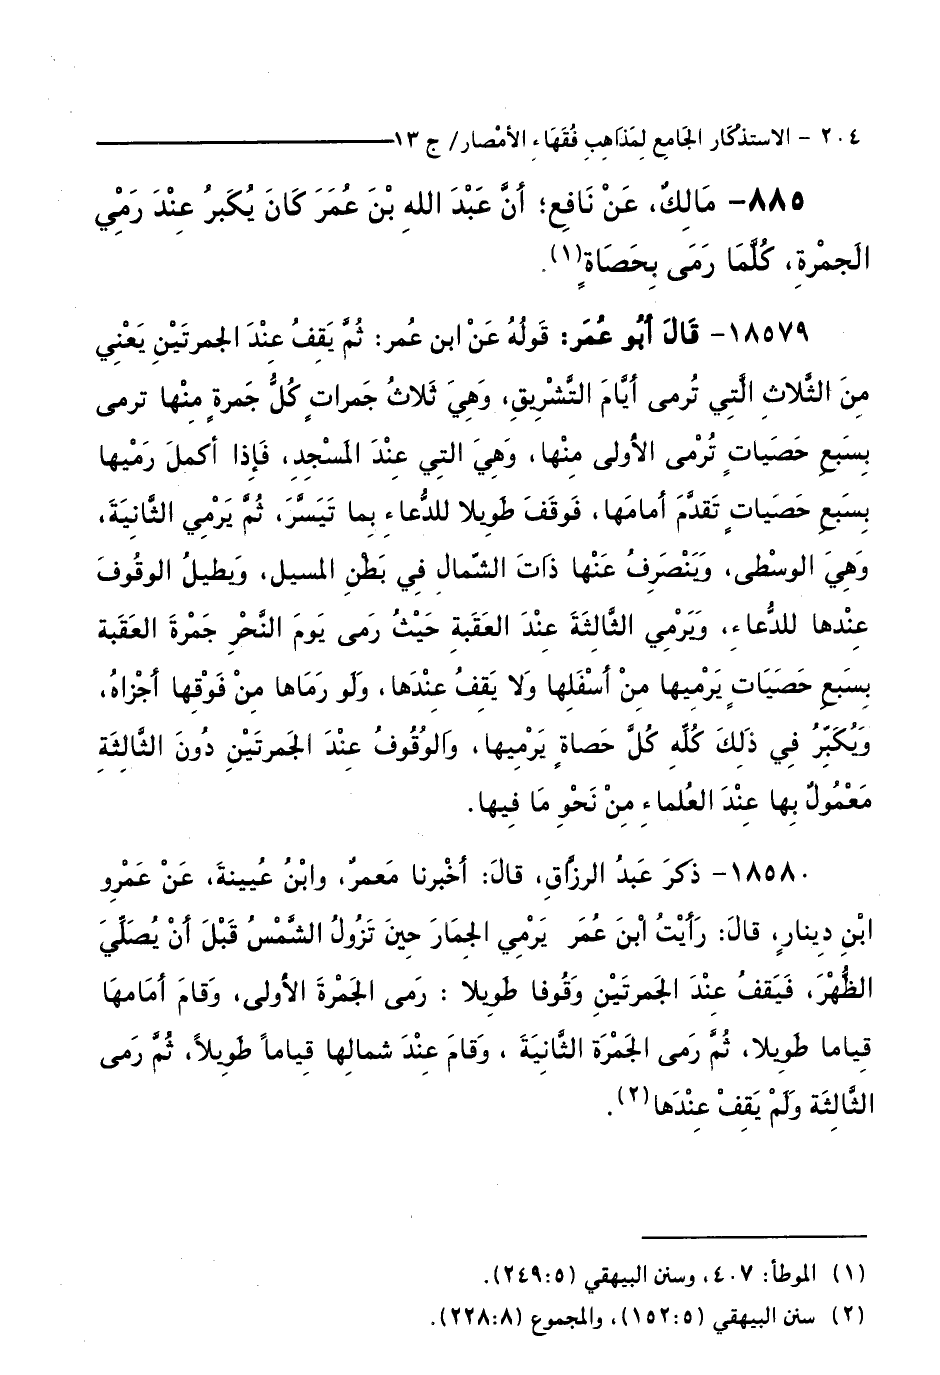 ٢٠٤ - الاستذكار الجامع لمذاهب فُقَهَاء الأمْصار/ ج ١٣
٨٨٥- مَالِكٌ، عَنْ نَافِعٍ؛ أنَّ عَبْدَ اللهِ بْنَ عُمَرَ كَانَ يُكَبرُ عِنْدَ رَمْيِ
الجَمْرةِ، كُلَّمَا رَمَى بِحَصَاةٍ(١).
١٨٥٧٩- قَالَ أَبُو عُمَرَ: قَولُهُ عَنْ ابنِ عُمر: ثُمَّ يَقفُ عِنْدَ الجمرتَيْنِ يَعْنِي
مِنَ الثَّلاثِ الَّتِي تُرمى أيَّامَ التَّشريقِ، وَهِيَ ثَلاثُ جَمراتٍ كُلُّ جَمرةٍ مِنْها ترمى
بِسَبعِ حَصَياتٍ تُرْمى الأولى مِنْها، وَهِيَ التي عِنْدَ المَسْجِدِ، فَإذا أكملَ رَمْيها
بِسَبعِ حَصَياتٍ تَقدَّمَ أمامَها، فَوقَفَ طَويلا للدُّعاءِ بِما تَيَسَّرَ، ثُمَّ يَرْمِي الثَّانِيَةَ،
وَهِيَ الوسْطى، وَيَنْصَرِفُ عَنْها ذاتَ الشّمالِ في بَطْنِ المسيل، وَيطيلُ الوقُوفَ
عِنْدها للدُّعاءِ، ويَرْمِي الثَّالثَةَ عِنْدَ العَقَبةِ حَيْثُ رَمى يَومَ النَّحْرِ جَمْرةَ العَقَبة
بِسَبعِ حَصَيَاتٍ يَرْمِيها مِنْ أسْفَلِها وَلا يَقفُ عِنْدَها، وَلَو رَمَاها مِنْ فَوْقها أجْزاهُ،
وَيُكَبِّرُ في ذَلِكَ كُلّهِ كُلَّ حَصاةٍ يَرْمِيها، وَالوُقُوفُ عِنْدَ الجَمرتَيْنِ دُونَ الثَّالِثَةِ
مَعْمُولٌ بِها عِنْدَ العُلماءِ مِنْ نَحْوِ مَا فِيها.
١٨٥٨٠- ذكَرَ عَبدُ الرزَّاقِ، قالَ: أخْبرنا مَعمرٌ، وابْنُ عُيينةَ، عَنْ عَمْرِو
ابْنِ دِينارٍ، قالَ: رَأيْتُ ابْنَ عُمَرَ يَرْمِي الجِمَارَ حينَ تَزُولُ الشَّمْسُ قَبْلَ أنْ يُصَلِّيَ
الظُّهْرَ، فَيَقفُ عِنْدَ الجَمرتَيْنِ وَقُوفا طَويلا : رَمى الجَمْرةَ الأولى، وَقامَ أمَامهَا
قياما طَويلا، ثُمَّ رَمى الجَمْرَة الثَّانِيَةَ ، وَقامَ عِنْدَ شمالِها قياماً طَويلاً، ثُمَّ رَمى
الثَّالِثَة وَلَمْ يَقِفْ عِنْدَها(٢).
(١) الموطأ: ٤٠٧، وسنن البيهقي (٢٤٩:٥).
(٢) سنن البيهقي (١٥٢:٥)، والمجموع (٢٢٨:٨).